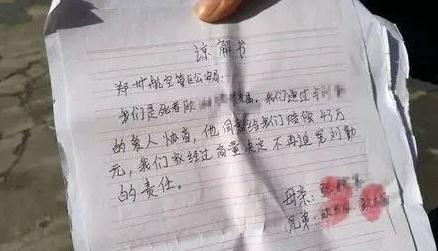 谅解书
郑州航空管区公安：
我们是死者欧
我们通过
的爱人协商，他同意给我们赔偿45万
元，我们家经过商量决定不再追究刘勤
的责任。
母亲：
兄弟：欧